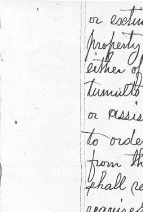 or
property
either of
tumults
or assis
to orde
from th
shall re
require